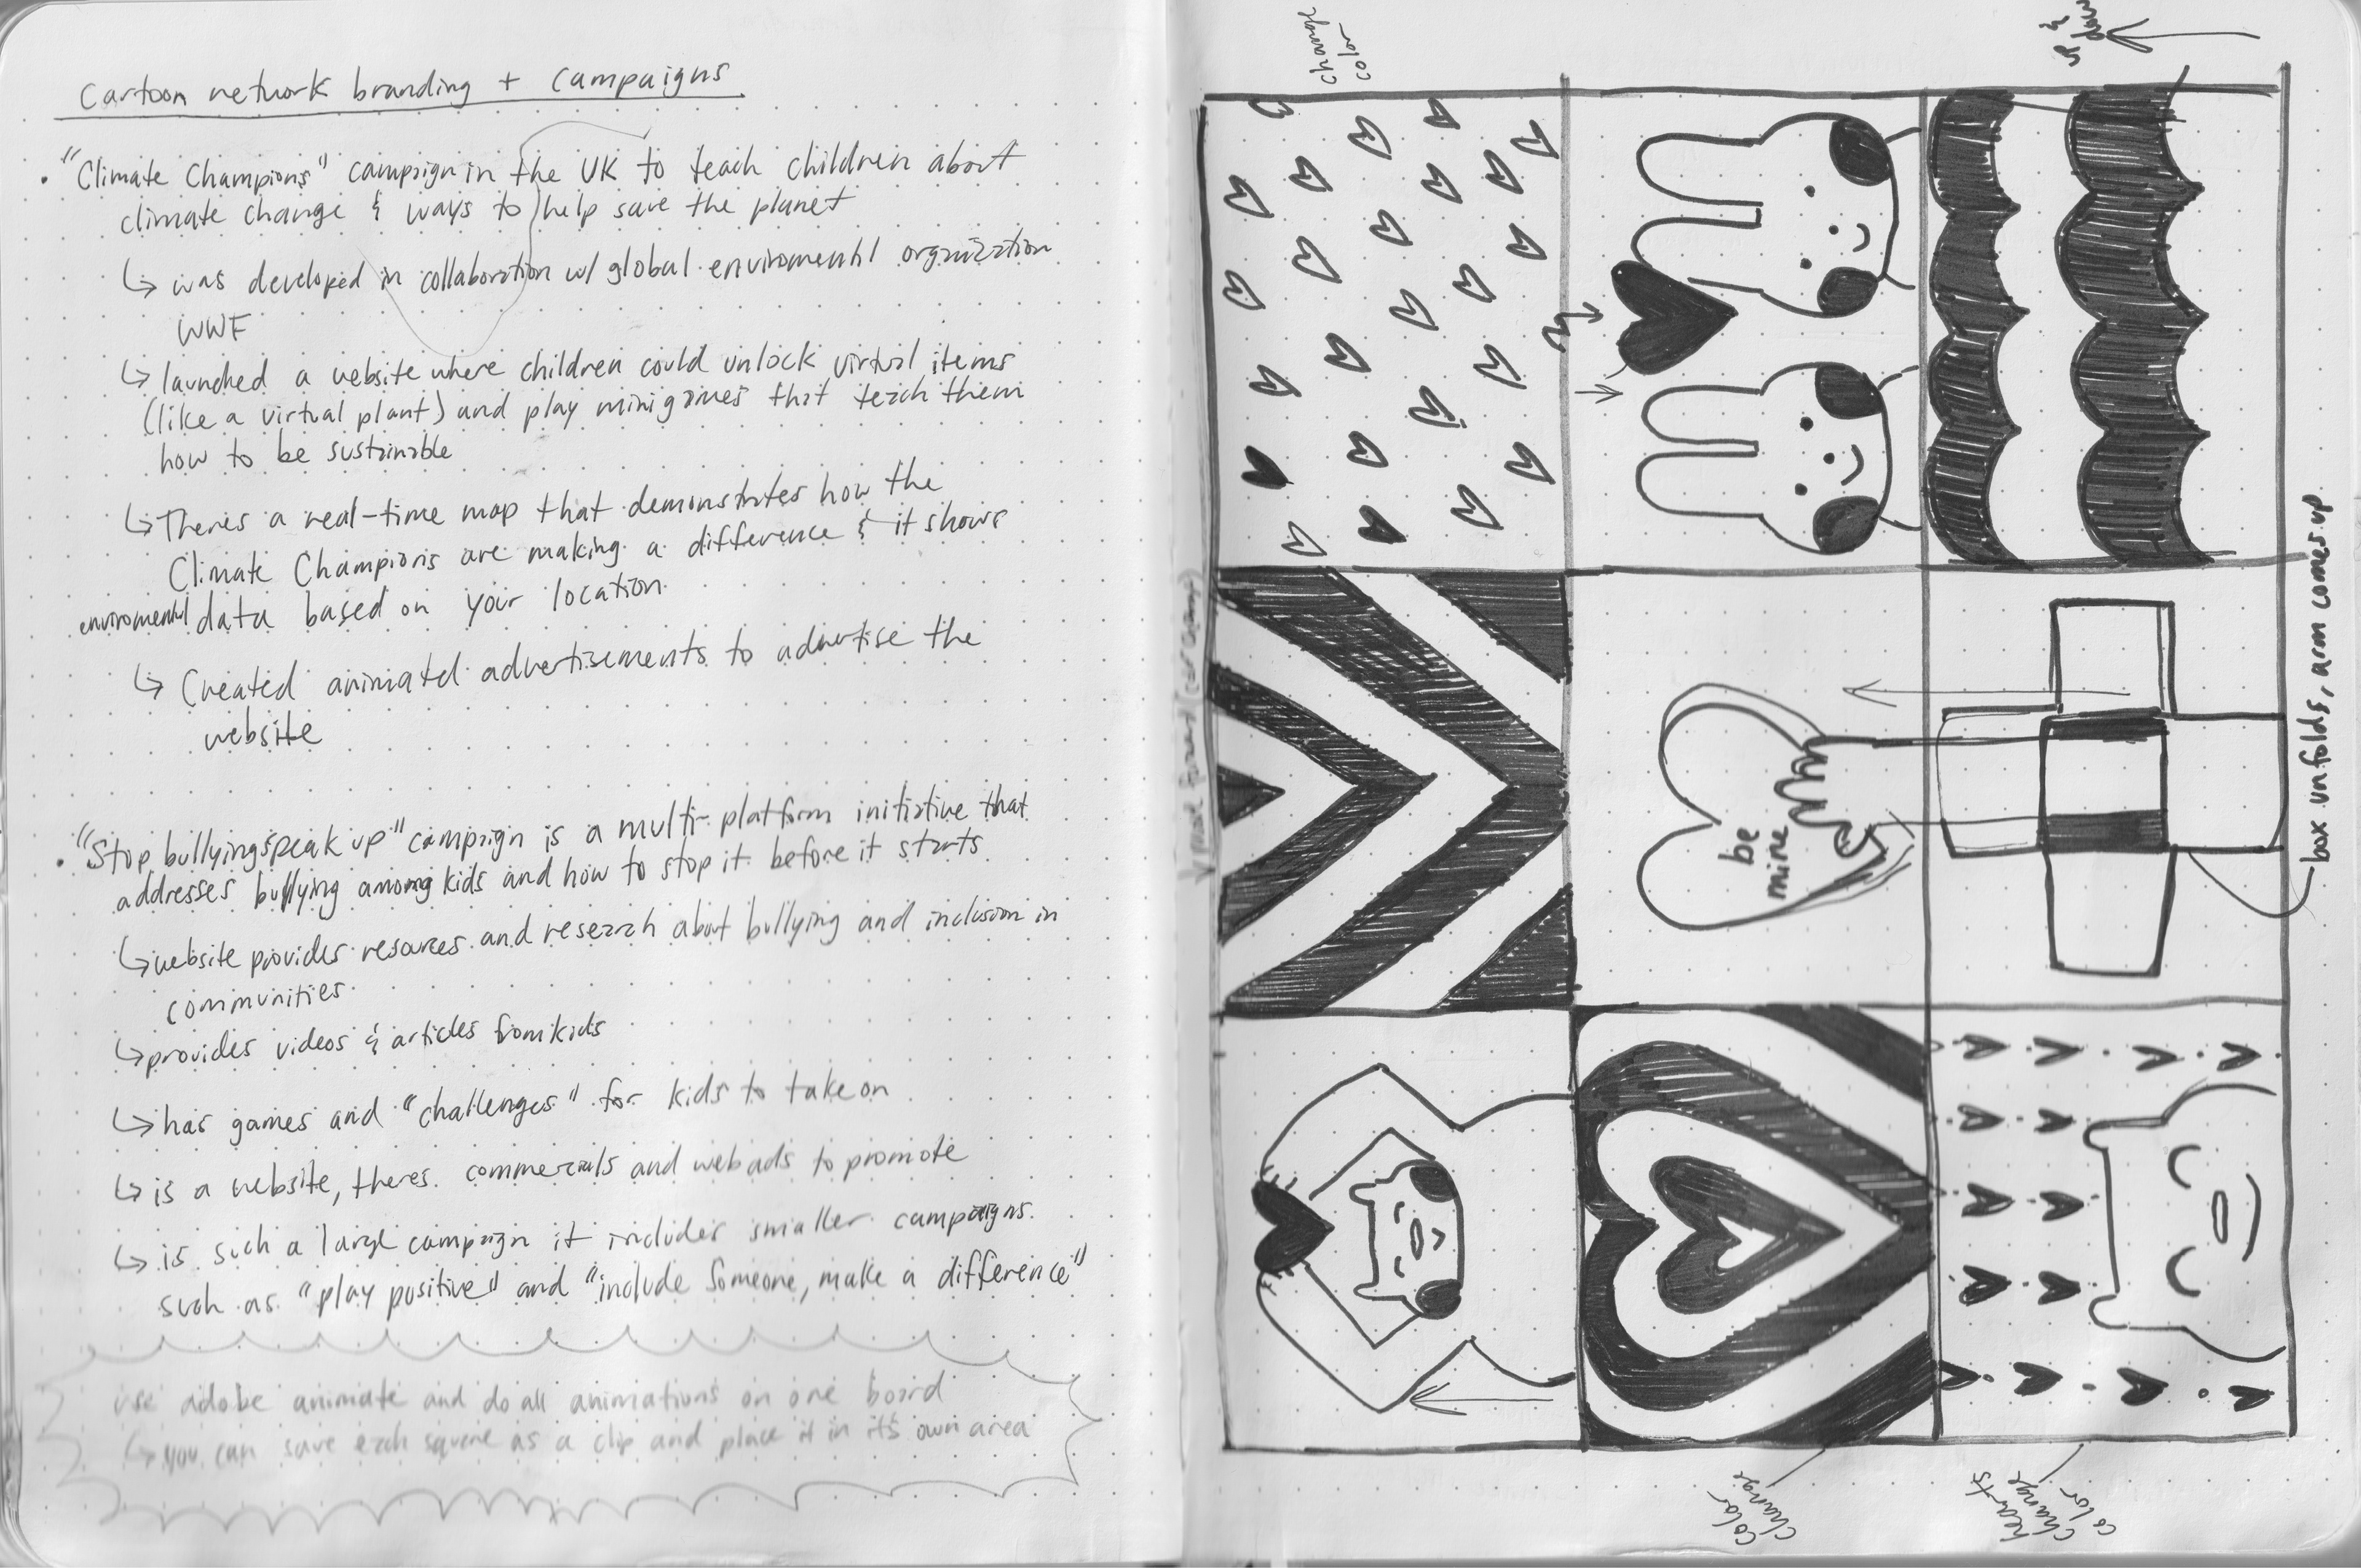 Cartoon network branding + campaigns
• "Climate Champions" campaign in the UK to teach children about
climate change & ways to help save the planet
↳ was developed in collaboration w/ global enviromentl orgnization
WWF
↳ launched a website where children could unlock virtual items
(like a virtual plant) and play minigames that teach them
how to be sustainable
↳ Theres a real-time map that demonstrates how the
Climate Champions are making a difference & it shows
enviromental data based on your location
↳ Created animated advertisements to advertise the
website
• "Stop bullying speak up" campaign is a multi-platform initiative that
addresses bullying among kids and how to stop it before it starts
↳ website provides resources and research about bullying and inclusion in
communities
↳ provides videos & articles from kids
↳ has games and "challenges" for kids to take on
↳ is a website, theres commercials and web ads to promote
↳ is such a large campaign it includes smaller campaigns
such as "play positive" and "include someone, make a difference"
use adobe animate and do all animations on one board
↳ you can save each square as a clip and place it in it's own area
change
color
up
&
down
be
mine
box unfolds, arm comes up
color
change
hearts
change
color